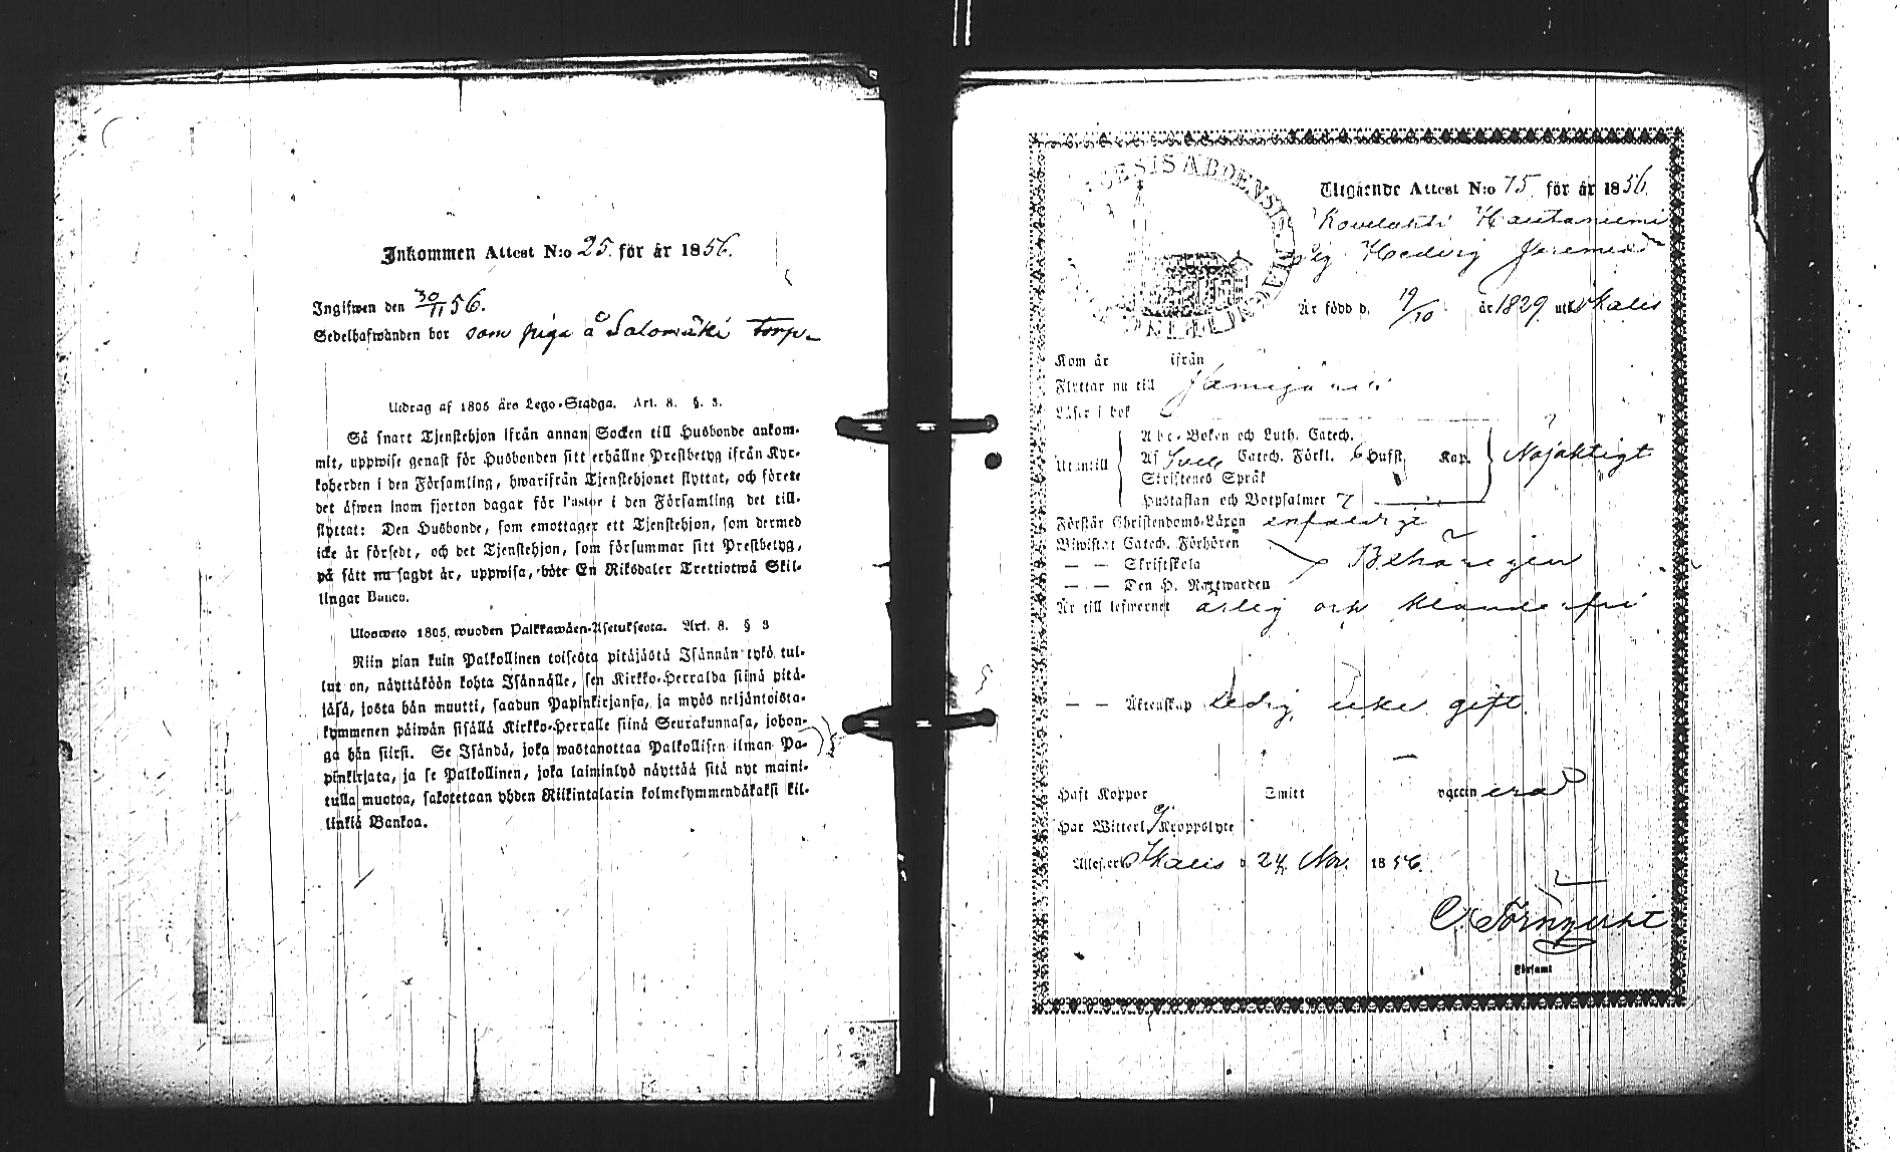 Inkommen Attest N:o 25. för år 1856.
Ingifwen den 30/11 56.
Sedelhafwanden bor som piga å Salomäki torp.
Utdrag af 1805 års Lego-Stadga. Art. 8. §. 3.
Så snart Tjenstehjon ifrån annan Socken till Husbonde ankom-
mit, uppwise genast för Husbonden sitt erhållne Prestbetyg ifrån Kyr-
koherden i den Församling, hwarifrån Tjenstehjonet flyttat, och förete
det äfwen inom fjorton dagar för Pastor i den Församling det till-
flyttat: Den Husbonde, som emottager ett Tjenstehjon, som dermed
icke är försedt, och det Tjenstehjon, som försummar sitt Prestbetyg,
på sätt nu sagdt är, uppwisa, böte En Riksdaler Trettiotwå Skil-
lingar Banco.
Ulosweto 1805, wuoden Palkkawäen-Asetuksesta. Art. 8. § 3
Niin pian kuin Palkollinen toisesta pitäjästä Isännän tykö tul-
lut on, näyttäköön kohta Isännälle, sen Kirkko-Herralda siinä pitä-
jäsä, josta hän muutti, saadun Papinkirjansa, ja myös neljäntoista-
kymmenen päiwän sisällä Kirkko-Herralle siinä Seurakunnasa, johon-
ga hän siirsi. Se Isändä, joka wastanottaa Palkollisen ilman Pa-
pinkirjata, ja se Palkollinen, joka laiminlyö näyttää sitä nyt maini-
tulla muotoa, sakotetaan yhden Riikintalarin kolmekymmendäkaksi kil-
linkiä Bankoa.
DIOECESIS ABOENSIS MAGN
Utgående Attest N:o 75 för år 1856.
Kovelahti Hautaniemi
Pig Hedvig Jeremiasdr
Är född d. 19/10 år 1829 uti Ikalis
Kom år ifrån
Flyttar nu till Jämijärvi
Läser i bok
Abc-Boken och Luth. Catech.
Utantill Af Sveb Catech. Förkl. 6 Hufst. Kap. Nöjaktigt
Skriftenes Språk
Hustaflan och Botpsalmer 7
Förstår Christendoms-Läran enfaldigt
Biwistat Catech. Förhören
— — Skriftskola Behörigen
— — Den H. Nattwarden
Är till lefwernet ärlig och klanderfri
— — Äktenskap Ledig, icke gift.
Haft Koppor Smitt vaccin erad
Har Witterl. Kroppslyte
Attester. Ikalis d. 24 Nov. 1856.
C. Törnqvist